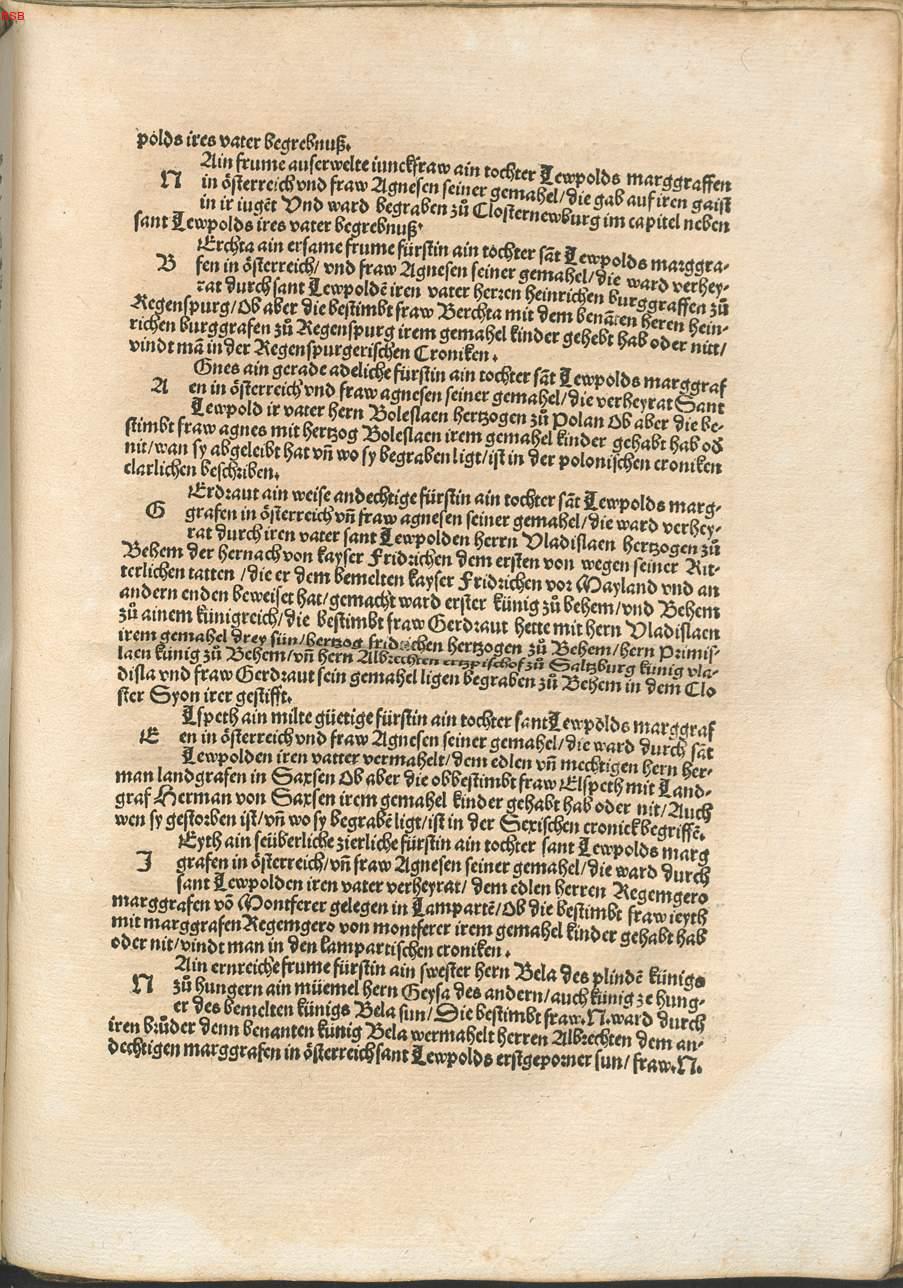 BSB
polds ires vater begrebnuß.
Ain frume auserwelte iunckfraw ain tochter Lewpolds marggraffen
N in österreich vnd fraw Agnesen seiner gemahel/die gab auf iren gaist
in ir iugẽt Vnd ward begraben zů Closternewburg im capitel neben
sant Lewpolds ires vater begrebnuß.
Erchta ain ersame frume fürstin ain tochter sãt Lewpolds marggra-
B fen in österreich/ vnd fraw Agnesen seiner gemahel/die ward verhey-
rat durch sant Lewpoldẽ iren vater herren heinrichen burggraffen zů
Regenspurg/Ob aber die bestimbt fraw Berchta mit dem benãten heren hein-
richen burggrafen zů Regenspurg irem gemahel kinder gehebt hab oder nitt/
vindt mã in der Regenspurgerischen Croniken.
Gnes ain gerade adeliche fürstin ain tochter sãt Lewpolds marggraf
A en in österreich vnd fraw agnesen seiner gemahel/die verheyrat Sant
Lewpold ir vater hern Boleslaen hertzogen zů Polan Ob aber die be-
stimbt fraw agnes mit hertzog Boleslaen irem gemahel kinder gehabt hab od̃
nit/wan sy abgeleibt hat vñ wo sy begraben ligt/ist in der polonischen croniken
clarlichen beschriben.
Erdraut ain weise andechtige fürstin ain tochter sãt Lewpolds marg-
G grafen in österreich vñ fraw agnesen seiner gemahel/die ward verhey-
rat durch iren vater sant Lewpolden herrn Vladislaen hertzogen zů
Behem der hernach von kayser Fridrichen dem ersten von wegen seiner Rit-
terlichen tatten /die er dem bemelten kayser Fridrichen vor Mayland vnd an
andern enden beweiset hat/gemacht ward erster künig zů behem/vnd Behem
zů ainem künigreich/die bestimbt fraw Gerdraut hette mit hern Vladislaen
irem gemahel drey sün/hertzog fridrichen hertzogen zů Behem/hern Primis-
laen künig zů Behem/vñ hern Albrechten ertzpischof zů Saltzburg künig vla-
disla vnd fraw Gerdraut sein gemahel ligen begraben zů Behem in dem Clo
ster Syon irer gestifft.
Lspeth ain milte güetige fürstin ain tochter sant Lewpolds marggraf
E en in österreich vnd fraw Agnesen seiner gemahel/die ward durch sãt
Lewpolden iren vatter vermahelt/dem edlen vñ mechtigen hern her-
man landgrafen in Saxsen Ob aber die obbestimbt fraw Elspeth mit Land-
graf Herman von Saxsen irem gemahel kinder gehabt hab oder nit/Auch
wen sy gestorben ist/vñ wo sy begrabẽ ligt/ist in der Sexischen cronick begriffẽ.
Eyth ain seüberliche zierliche fürstin ain tochter sant Lewpolds marg
J grafen in österreich/vñ fraw Agnesen seiner gemahel/die ward durch
sant Lewpolden iren vater verheyrat/ dem edlen herren Regemgero
marggrafen võ Montferer gelegen in Lampartẽ/Ob die bestimbt fraw ieyth
mit marggrafen Regemgero von montferer irem gemahel kinder gehabt hab
oder nit/vindt man in den lampartischen croniken.
Ain ernreiche frume fürstin ain swester hern Bela des plindẽ künigs
N zů hungern ain müemel hern Geysa des andern/auch künig ze hung-
er des bemelten künigs Bela sun/Die bestimbt fraw.N.ward durch
iren brůder denn benanten künig Bela wermahelt herren Albrechten dem an-
dechtigen marggrafen in österreich sant Lewpolds erstgeporner sun/ fraw.N.